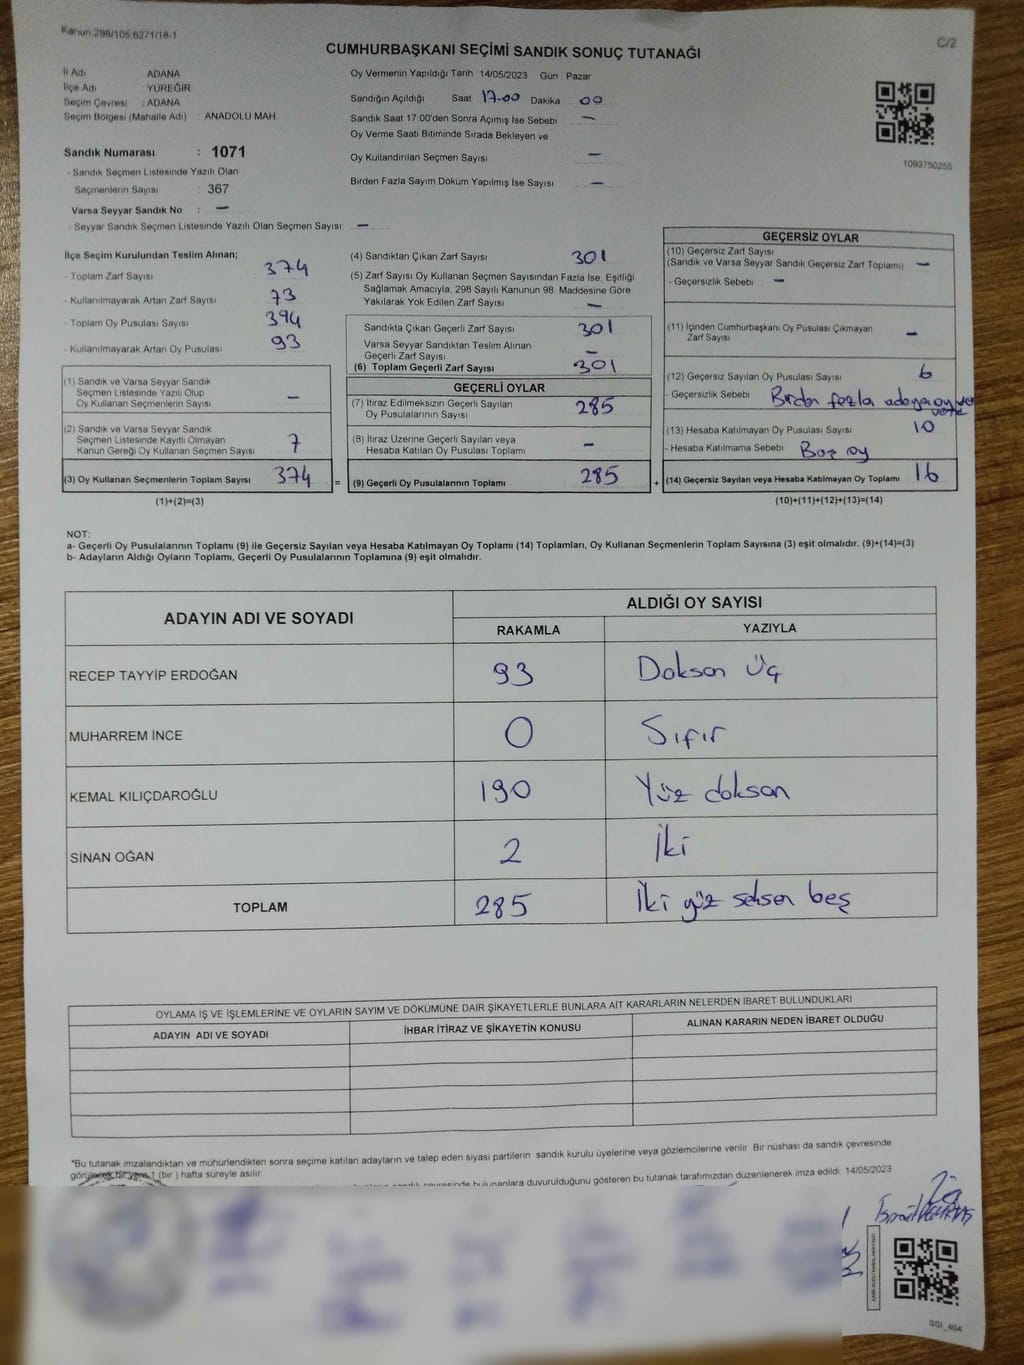 Kanun 298/105 6271/18-1
C/2
CUMHURBAŞKANI SEÇİMİ SANDIK SONUÇ TUTANAĞI
İl Adı ADANA
İlçe Adı YÜREĞİR
Seçim Çevresi : ADANA
Seçim Bölgesi (Mahalle Adı) : ANADOLU MAH.
Sandık Numarası : 1071
- Sandık Seçmen Listesinde Yazılı Olan
Seçmenlerin Sayısı : 367
Varsa Seyyar Sandık No : —
- Seyyar Sandık Seçmen Listesinde Yazılı Olan Seçmen Sayısı : —
Oy Vermenin Yapıldığı Tarih 14/05/2023 Gün : Pazar
Sandığın Açıldığı Saat 17.00 Dakika 00
Sandık Saat 17:00'den Sonra Açımış İse Sebebi : —
Oy Verme Saati Bitiminde Sırada Bekleyen ve
Oy Kullandırılan Seçmen Sayısı —
Birden Fazla Sayım Döküm Yapılmış İse Sayısı —
1093750255
İlçe Seçim Kurulundan Teslim Alınan;
- Toplam Zarf Sayısı 374
- Kullanılmayarak Artan Zarf Sayısı 73
- Toplam Oy Pusulası Sayısı 394
- Kullanılmayarak Artan Oy Pusulası 93
(1) Sandık ve Varsa Seyyar Sandık
Seçmen Listesinde Yazılı Olup
Oy Kullanan Seçmenlerin Sayısı —
(2) Sandık ve Varsa Seyyar Sandık
Seçmen Listesinde Kayıtlı Olmayan
Kanun Gereği Oy Kullanan Seçmen Sayısı 7
(3) Oy Kullanan Seçmenlerin Toplam Sayısı 374
(1)+(2)=(3)
(4) Sandıktan Çıkan Zarf Sayısı 301
(5) Zarf Sayısı Oy Kullanan Seçmen Sayısından Fazla İse, Eşitliği
Sağlamak Amacıyla, 298 Sayılı Kanunun 98. Maddesine Göre
Yakılarak Yok Edilen Zarf Sayısı —
Sandıkta Çıkan Geçerli Zarf Sayısı 301
Varsa Seyyar Sandıktan Teslim Alınan
Geçerli Zarf Sayısı —
(6) Toplam Geçerli Zarf Sayısı 301
GEÇERLİ OYLAR
(7) İtiraz Edilmeksizin Geçerli Sayılan
Oy Pusulalarının Sayısı 285
(8) İtiraz Üzerine Geçerli Sayılan veya
Hesaba Katılan Oy Pusulası Toplamı —
= (9) Geçerli Oy Pusulalarının Toplamı 285
GEÇERSİZ OYLAR
(10) Geçersiz Zarf Sayısı
(Sandık ve Varsa Seyyar Sandık Geçersiz Zarf Toplamı) —
- Geçersizlik Sebebi : —
(11) İçinden Cumhurbaşkanı Oy Pusulası Çıkmayan
Zarf Sayısı —
(12) Geçersiz Sayılan Oy Pusulası Sayısı 6
- Geçersizlik Sebebi : Birden fazla adaya oy ver
(13) Hesaba Katılmayan Oy Pusulası Sayısı 10
- Hesaba Katılmama Sebebi : Boş oy
+ (14) Geçersiz Sayılan veya Hesaba Katılmayan Oy Toplamı 16
(10)+(11)+(12)+(13)=(14)
NOT:
a- Geçerli Oy Pusulalarının Toplamı (9) ile Geçersiz Sayılan veya Hesaba Katılmayan Oy Toplamı (14) Toplamları, Oy Kullanan Seçmenlerin Toplam Sayısına (3) eşit olmalıdır. (9)+(14)=(3)
b- Adayların Aldığı Oyların Toplamı, Geçerli Oy Pusulalarının Toplamına (9) eşit olmalıdır.
ADAYIN ADI VE SOYADI
ALDIĞI OY SAYISI
RAKAMLA YAZIYLA
RECEP TAYYİP ERDOĞAN 93 Doksan üç
MUHARREM İNCE 0 Sıfır
KEMAL KILIÇDAROĞLU 190 Yüz doksan
SİNAN OĞAN 2 İki
TOPLAM 285 İki yüz seksen beş
OYLAMA İŞ VE İŞLEMLERİNE VE OYLARIN SAYIM VE DÖKÜMÜNE DAİR ŞİKAYETLERLE BUNLARA AİT KARARLARIN NELERDEN İBARET BULUNDUKLARI
ADAYIN ADI VE SOYADI İHBAR İTİRAZ VE ŞİKAYETİN KONUSU ALINAN KARARIN NEDEN İBARET OLDUĞU
*Bu tutanak imzalandıktan ve mühürlendikten sonra seçime katılan adayların ve talep eden siyasi partilerin sandık kurulu üyelerine veya gözlemcilerine verilir. Bir nüshası da sandık çevresinde
görülecek bir yere 1 (bir) hafta süreyle asılır.
bulunanlara duyurulduğunu gösteren bu tutanak tarafımızdan düzenlenerek imza edildi. 14/05/2023
İsmail
SSI_464